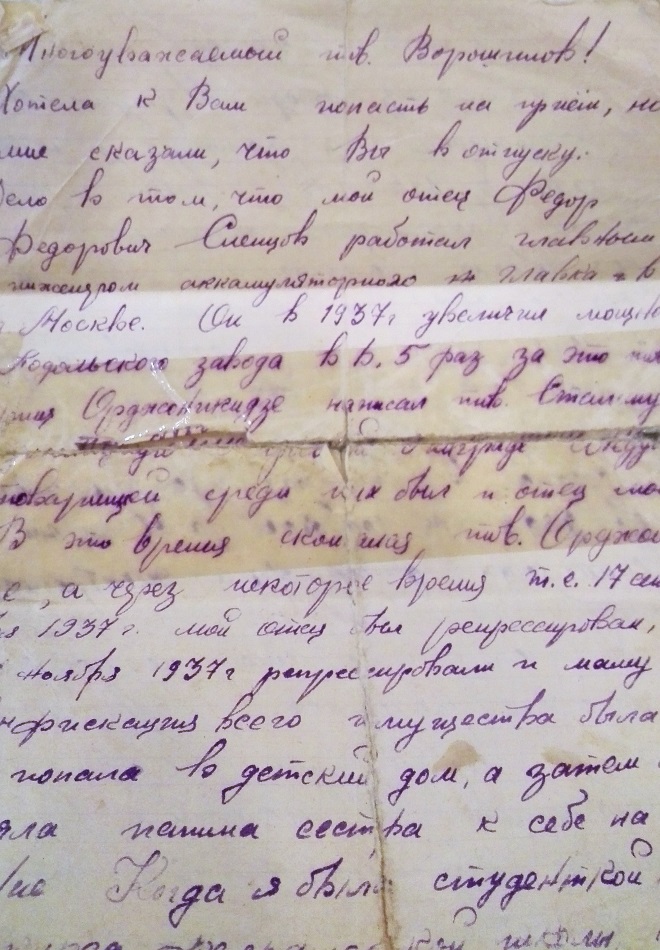 Многоуважаемый тов. Ворошилов!
Хотела к Вам попасть на приём, но
мне сказали, что Вы в отпуску.
Дело в том, что мой отец Федор
Федорович Слепцов работал главным
инженером аккумуляторного главка в
Москве. Он в 1937г увеличил мощно
Подольского завода в 5 раз за это
Орджоникидзе написал тов. Сталину
награде
товарищей среди них был и отец мо
В это время скончался тов. Орджон
е, а через некоторое время т.е. 17 сен
1937г. мой отец был репрессирован,
ноября 1937г репрессировали и маму
нфискация всего имущества была
попала в детский дом, а затем
яла папина сестра к себе на
ие Когда я была студенткой